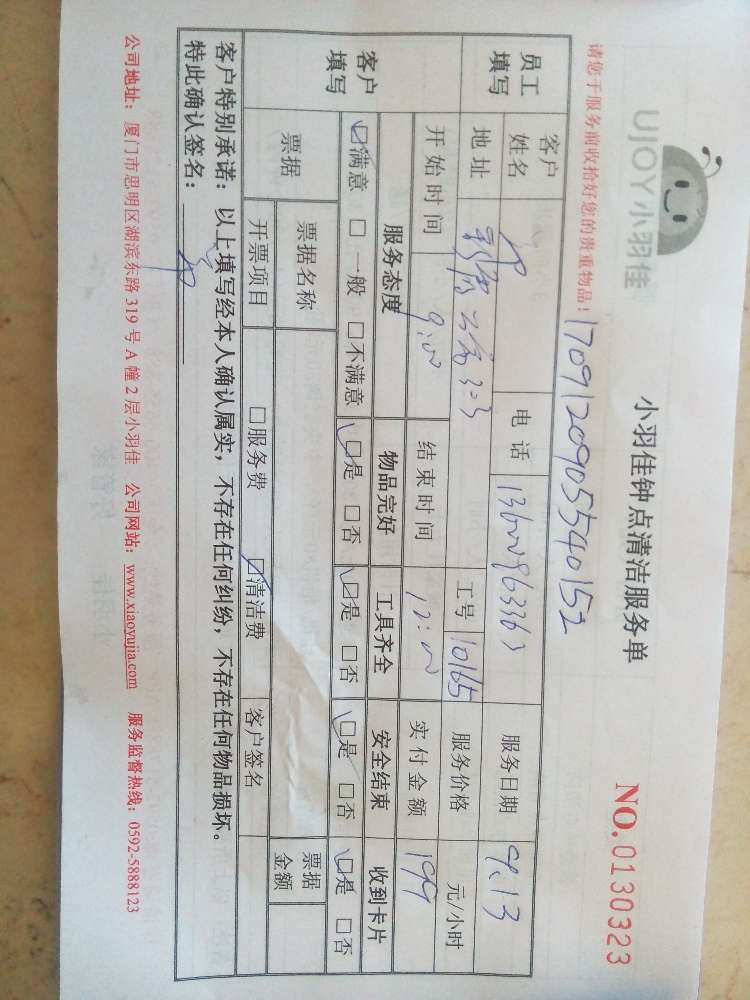 UJOY小羽佳
小羽佳钟点清洁服务单
NO.0130323
请您于服务前收拾好您的贵重物品！
1709120905540152
员工填写
客户姓名
电话
服务日期
9.13
地址
303
工号
10165
服务价格
元/小时
开始时间
9:00
结束时间
12:00
实付金额
199
客户填写
服务态度
物品完好
工具齐全
安全结束
收到卡片
☑满意 □一般 □不满意
☑是 □否
☑是 □否
☑是 □否
☑是 □否
票据
票据名称
票据金额
开票项目
□服务费
☑清洁费
客户签名
客户特别承诺：以上填写经本人确认属实，不存在任何纠纷，不存在任何物品损坏。
特此确认签名：
公司地址：厦门市思明区湖滨东路 319 号 A 幢 2 层小羽佳 公司网站：www.xiaoyujia.com 服务监督热线：0592-5888123